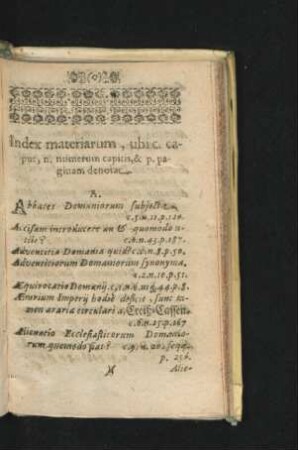 (o)
Index materiarum, ubi c. ca-
put, n. numerum capitis, & p. pa-
ginam denotat.
A.
Abbates Domaniorum subjecti
c.5.n.11.p.120.
Accisam introducere an & quomodo u-
tile? c.8.n.43.p.187.
Adventitia Domania quid? c.2.n.8.p.50.
Adventitiorum Domaniorum synonyma,
c.2.n.10.p.51.
Æquivocatio Domanij. c.1.n.
Ærarium Imperij hodiè deficit, sunt ta-
men araria circulari a. Creiß-Cassen.
c.8.n.15.p.167
Alienatio Ecclesiasticorum Domanio-
rum quomodo fiat? c.9.n.20. seqq.
p. 236.
Alie-